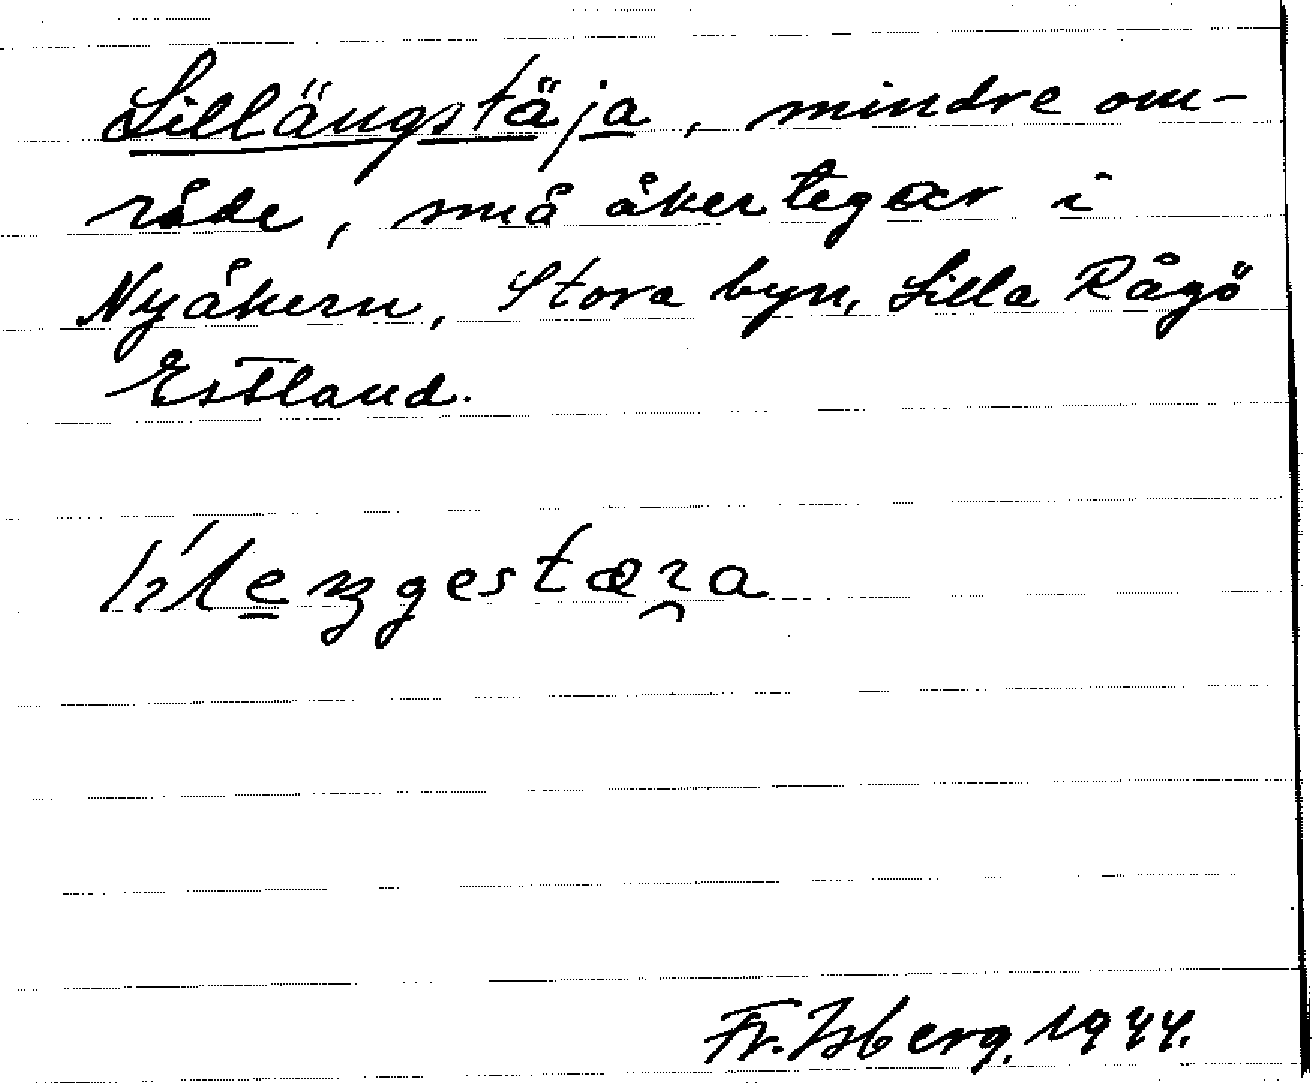 Lillängstäja, mindre om-
råde, små åkertegar i
Nyåkern, Stora byn, Lilla Rågö
Estland.
Fr. Isberg. 1944.